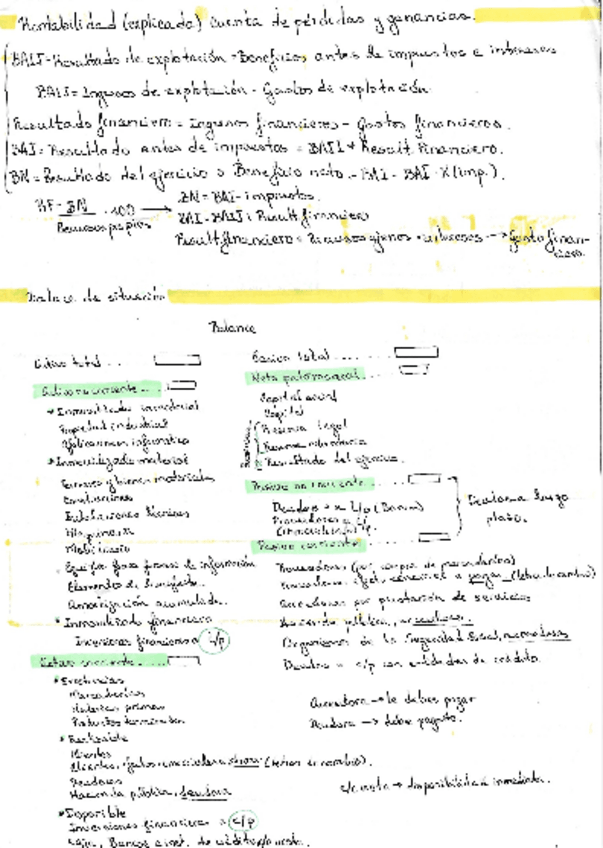 Rentabilidad (explicada) cuenta de pérdidas y ganancias.
BAII = Resultado de explotación = Beneficios antes de impuestos e intereses
BAII = Ingresos de explotación - Gastos de explotación
Resultado financiero = Ingresos financieros - Gastos financieros.
BAI = Resultado antes de impuestos = BAII + Result. Financiero.
BN = Resultado del ejercicio o Beneficio neto = BAI - BAI · X (imp.)
RF = BN / Recursos propios · 100 → BN = BAI - impuestos
BAI = BAII + Result financiero
Result financiero = Recursos ajenos · intereses → Gasto financiero.
Balance de situación
Balance
Activo total ...
Activo no corriente ...
* Inmovilizado inmaterial
Propiedad industrial
Aplicaciones informática
* Inmovilizado material
Terrenos y bienes materiales
Construcciones
Instalaciones técnicas
Maquinaria
Mobiliario
Equipos para proceso de información
Elementos de transporte
Amortización acumulada.
* Inmovilizado financiero
Inversiones financieras a l/p
Activo corriente ...
* Existencias
Mercaderías
Materias primas
Productos terminados
* Realizable
Clientes
Clientes, efectos comerciales a cobrar (letras de cambio).
Deudores
Hacienda pública, deudora
* Disponible
Inversiones financieras a c/p
Caja, Bancos e inst. de crédito
Pasivo total ...
Neto patrimonial ...
Capital social
Capital
Reserva legal
Reserva voluntaria
Resultado del ejercicio.
Pasivo no corriente ...
Deudas a l/p (Banco)
Proveedores a l/p
a largo plazo.
Pasivo corriente
Proveedores (por compra de mercaderías)
Proveedores, efect. comercial a pagar (letra de cambio)
Acreedores por prestación de servicios
Hacienda pública, acreedora.
Organismos de la Seguridad Social, acreedores
Deudas a c/p con entidades de crédito.
Acreedora → le debes pagar
Deudora → debe pagarte.
c/c vista → disponibilidad inmediata.